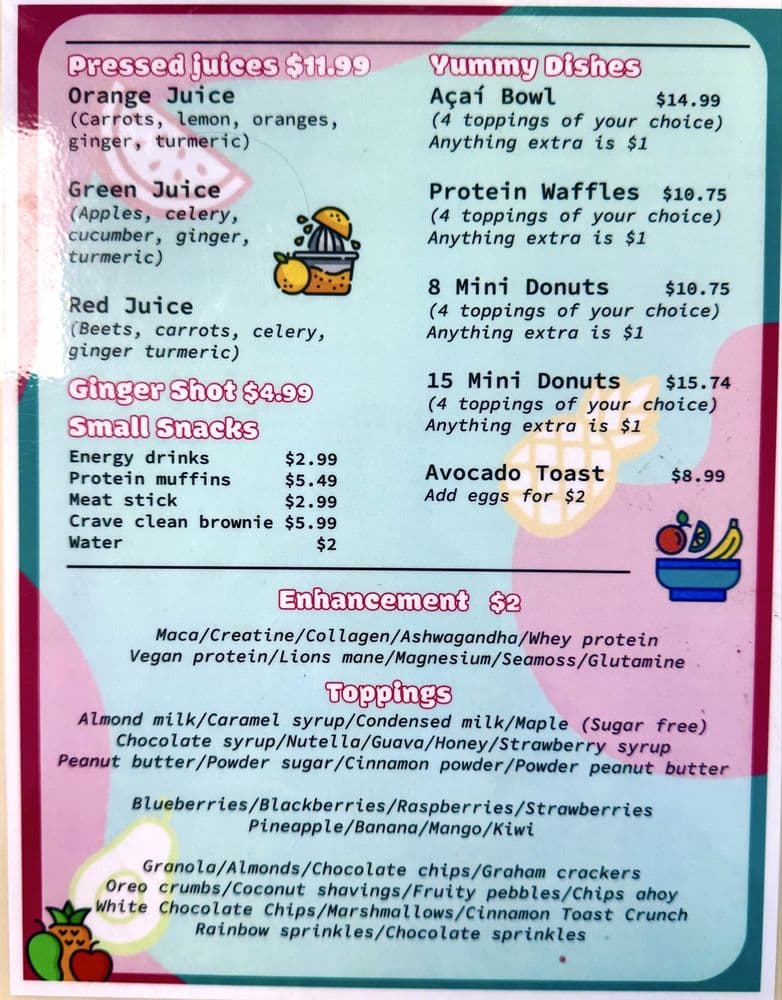 Pressed juices $11.99
Orange Juice
(Carrots, lemon, oranges,
ginger, turmeric)
Green Juice
(Apples, celery,
cucumber, ginger,
turmeric)
Red Juice
(Beets, carrots, celery,
ginger turmeric)
Ginger Shot $4.99
Small Snacks
Energy drinks $2.99
Protein muffins $5.49
Meat stick $2.99
Crave clean brownie $5.99
Water $2
Yummy Dishes
Açaí Bowl $14.99
(4 toppings of your choice)
Anything extra is $1
Protein Waffles $10.75
(4 toppings of your choice)
Anything extra is $1
8 Mini Donuts $10.75
(4 toppings of your choice)
Anything extra is $1
15 Mini Donuts $15.74
(4 toppings of your choice)
Anything extra is $1
Avocado Toast $8.99
Add eggs for $2
Enhancement $2
Maca/Creatine/Collagen/Ashwagandha/Whey protein
Vegan protein/Lions mane/Magnesium/Seamoss/Glutamine
Toppings
Almond milk/Caramel syrup/Condensed milk/Maple (Sugar free)
Chocolate syrup/Nutella/Guava/Honey/Strawberry syrup
Peanut butter/Powder sugar/Cinnamon powder/Powder peanut butter
Blueberries/Blackberries/Raspberries/Strawberries
Pineapple/Banana/Mango/Kiwi
Granola/Almonds/Chocolate chips/Graham crackers
Oreo crumbs/Coconut shavings/Fruity pebbles/Chips ahoy
White Chocolate Chips/Marshmallows/Cinnamon Toast Crunch
Rainbow sprinkles/Chocolate sprinkles